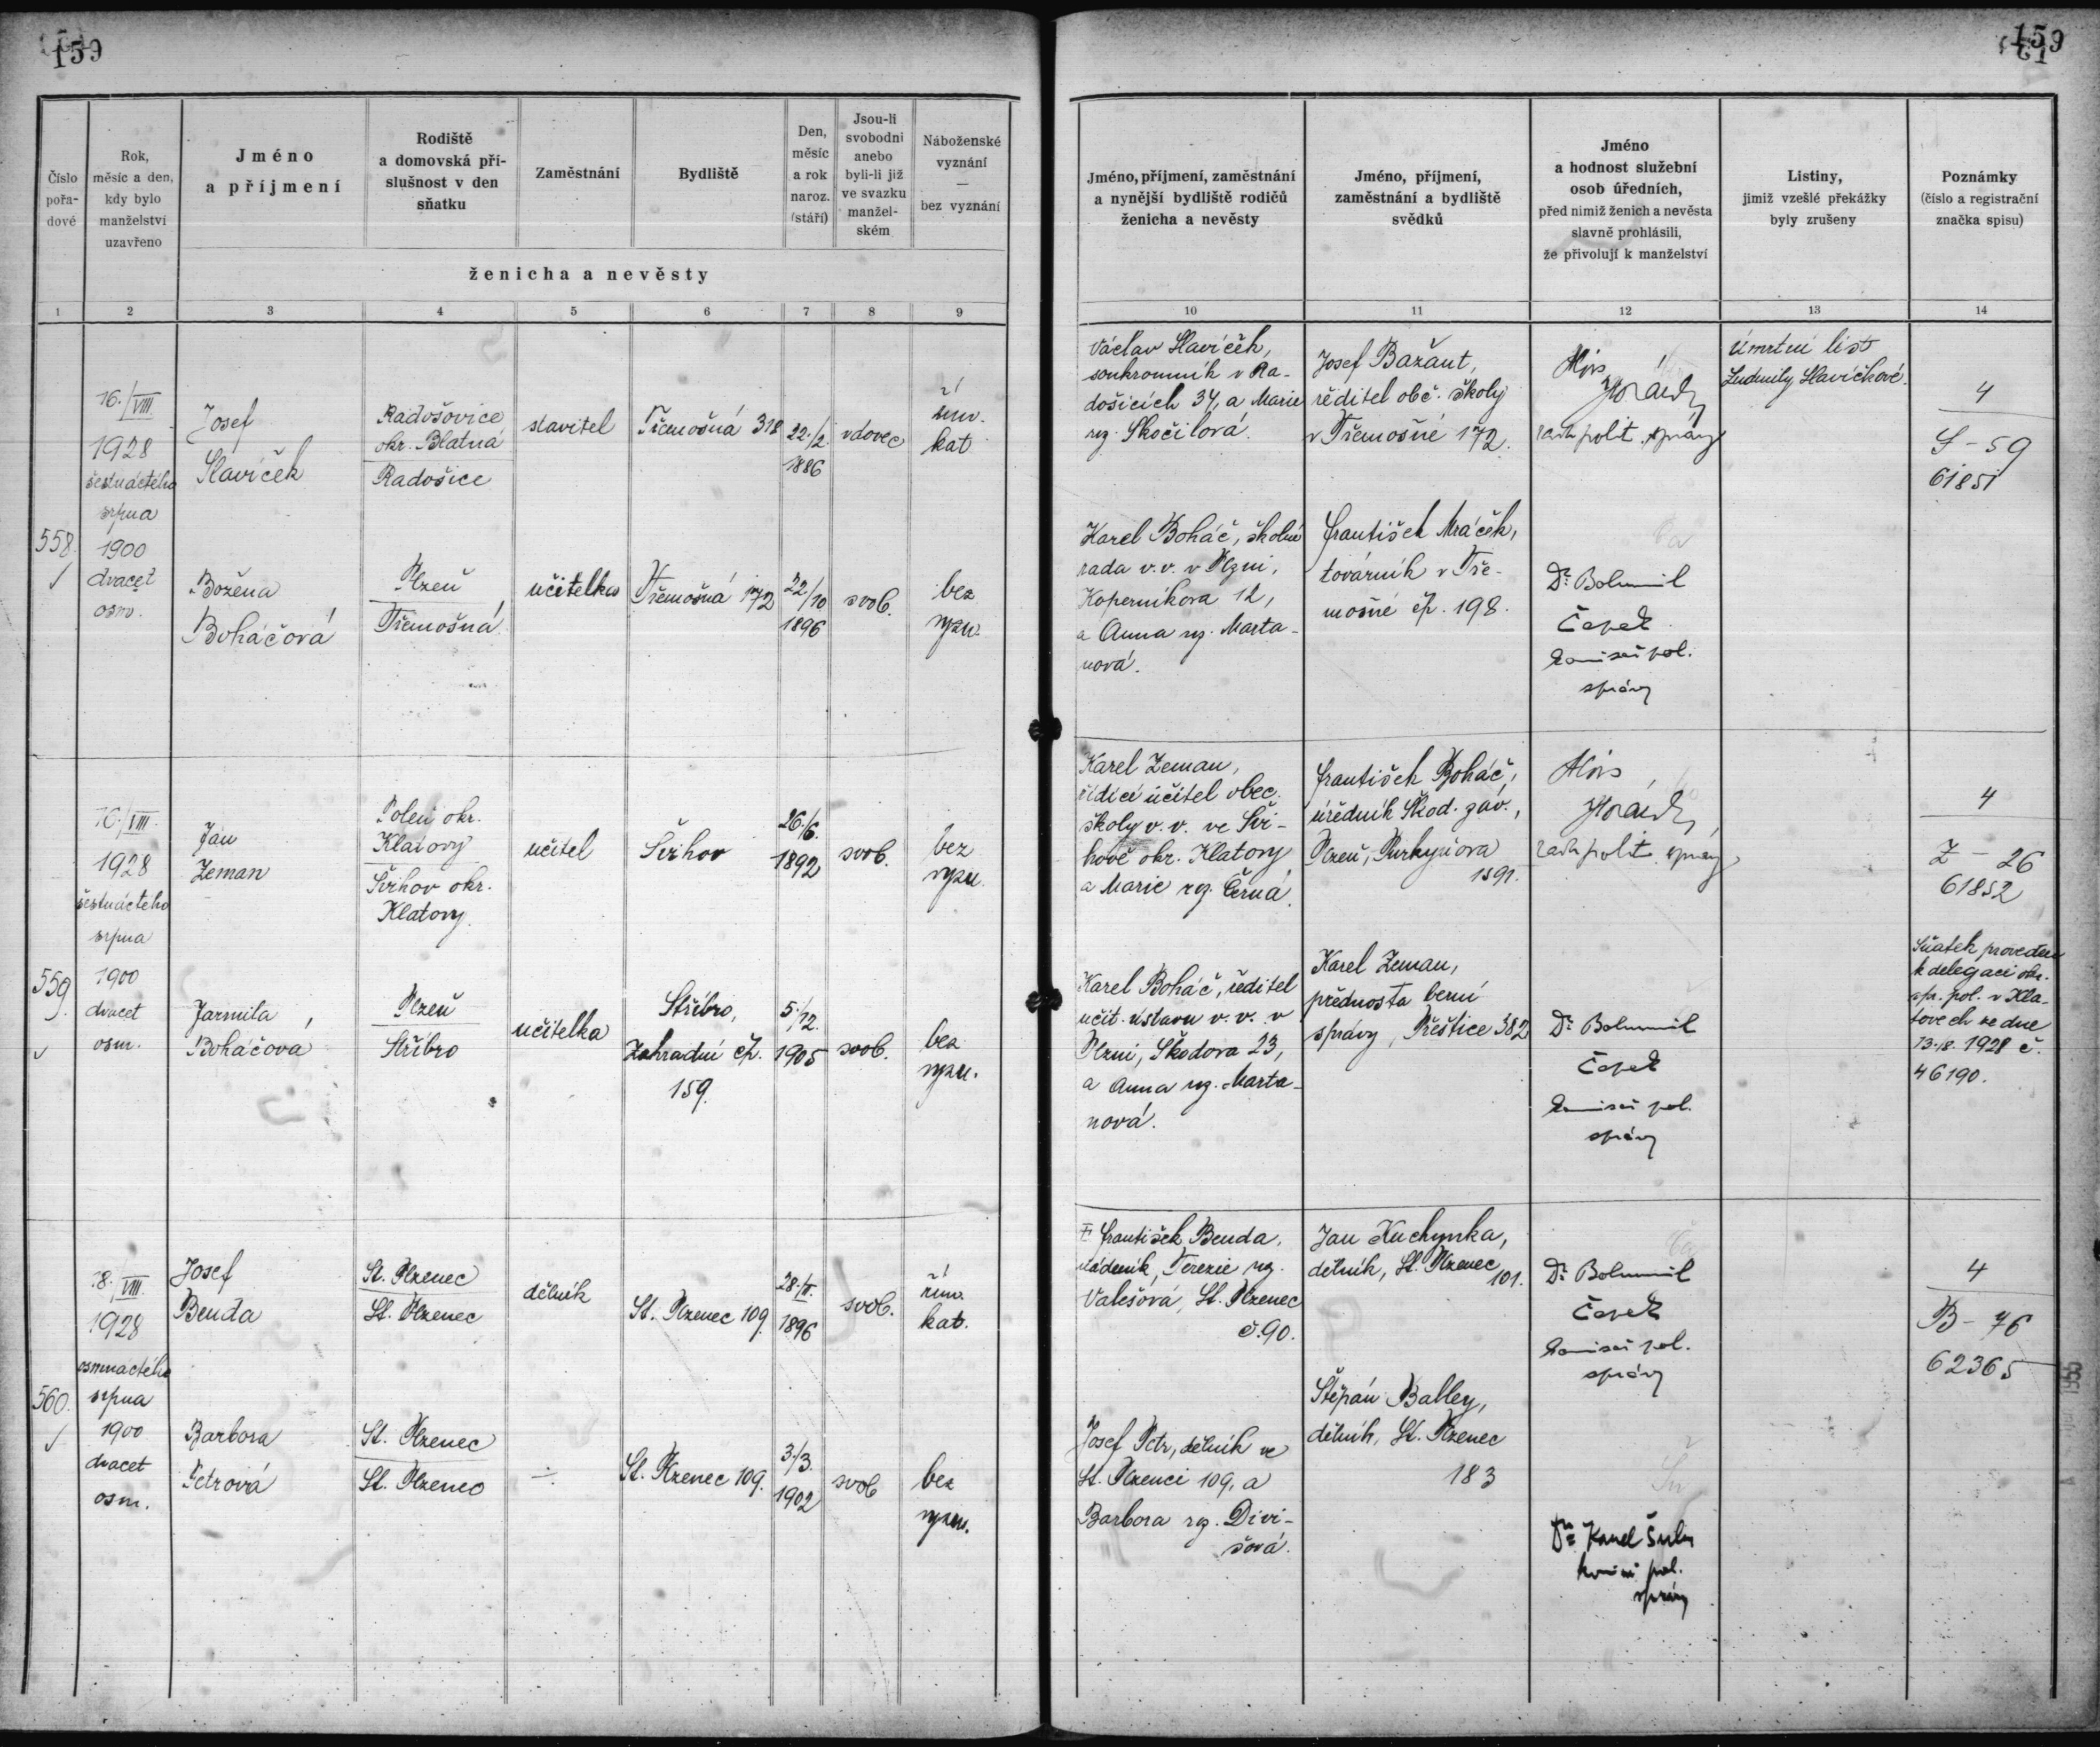 159
159
Číslo
pořa-
dové
Rok,
měsíc a den,
kdy bylo
manželství
uzavřeno
Jméno
a příjmení
Rodiště
a domovská pří-
slušnost v den
sňatku
Zaměstnání
Bydliště
Den,
měsíc
a rok
naroz.
(stáří)
Jsou-li
svobodni
anebo
byli-li již
ve svazku
manžel-
ském
Náboženské
vyznání
—
bez vyznání
ženicha a nevěsty
Jméno, příjmení, zaměstnání
a nynější bydliště rodičů
ženicha a nevěsty
Jméno, příjmení,
zaměstnání a bydliště
svědků
Jméno
a hodnost služební
osob úředních,
před nimiž ženich a nevěsta
slavně prohlásili,
že přivolují k manželství
Listiny,
jimiž vzešlé překážky
byly zrušeny
Poznámky
(číslo a registrační
značka spisu)
1 2 3 4 5 6 7 8 9 10 11 12 13 14
558.
16./VIII.
1928
šestnáctého
srpna
1900
dvacet
osm.
Josef
Slavíček
Radošovice
okr. Blatná
Radošice
stavitel
Třemošná 318
22./2.
1886
vdovec
řím.
kat.
Václav Slavíček,
soukromník v Ra-
došicích 34, a Marie
roz. Skočilová.
Josef Bažant,
ředitel obč. školy
v Třemošné 172.
Alois
rada polit. správy
Úmrtní list
Ludmily Slavíčkové.
4
S - 59
61851
Božena
Boháčová
Plzeň
Třemošná
učitelka
Třemošná 172
22/10
1896
svob.
bez
vyzn.
Karel Boháč, školní
rada v. v. v Plzni,
Koperníkova 12,
a Anna roz. Marta-
nová.
František Mráček,
továrník v Tře-
mošné čp. 198.
Dr. Bohumil
Čapek
komisař pol.
správy
559.
16./VIII.
1928
šestnáctého
srpna
1900
dvacet
osm.
Jan
Zeman
Poleň okr.
Klatovy
Švihov okr.
Klatovy.
učitel
Švihov
26./6.
1892
svob.
bez
vyzn.
Karel Zeman,
řídící učitel obec.
školy v. v. ve Švi-
hově okr. Klatovy
a Marie roz. Černá.
František Boháč,
úředník Škod. záv.,
Plzeň, Purkyňova
1591.
Alois
rada polit. správy
4
Z - 26
61852
Jarmila
Boháčová
Plzeň
Stříbro
učitelka
Stříbro,
Zahradní čp.
159.
5./12.
1905
svob.
bez
vyzn.
Karel Boháč, ředitel
učit. ústavu v. v. v
Plzni, Škodova 23,
a Anna roz. Marta-
nová.
Karel Zeman,
přednosta berní
správy, Přeštice 382
Dr. Bohumil
Čapek
komisař pol.
správy
Sňatek proveden
k delegaci okr.
spr. pol. v Kla-
tovech ze dne
13./8. 1928 č.
46190.
560.
18./VIII.
1928
osmnáctého
srpna
1900
dvacet
osm.
Josef
Benda
St. Plzenec
St. Plzenec
dělník
St. Plzenec 109.
28./V.
1896
svob.
řím.
kat.
† František Benda,
nádeník, Terezie roz.
Valešová, St. Plzenec
č. 90.
Jan Kuchynka,
dělník, St. Plzenec
101.
Dr. Bohumil
Čapek
komisař pol.
správy
4
B - 76
62365
Barbora
Petrová
St. Plzenec
St. Plzenec
÷
St. Plzenec 109.
3./3.
1902
svob
bez
vyzn.
Josef Petr, dělník ve
St. Plzenci 109, a
Barbora roz. Divi-
šová.
Štěpán Balley,
dělník, St. Plzenec
183
Dr. Karel
komisař pol.
správy